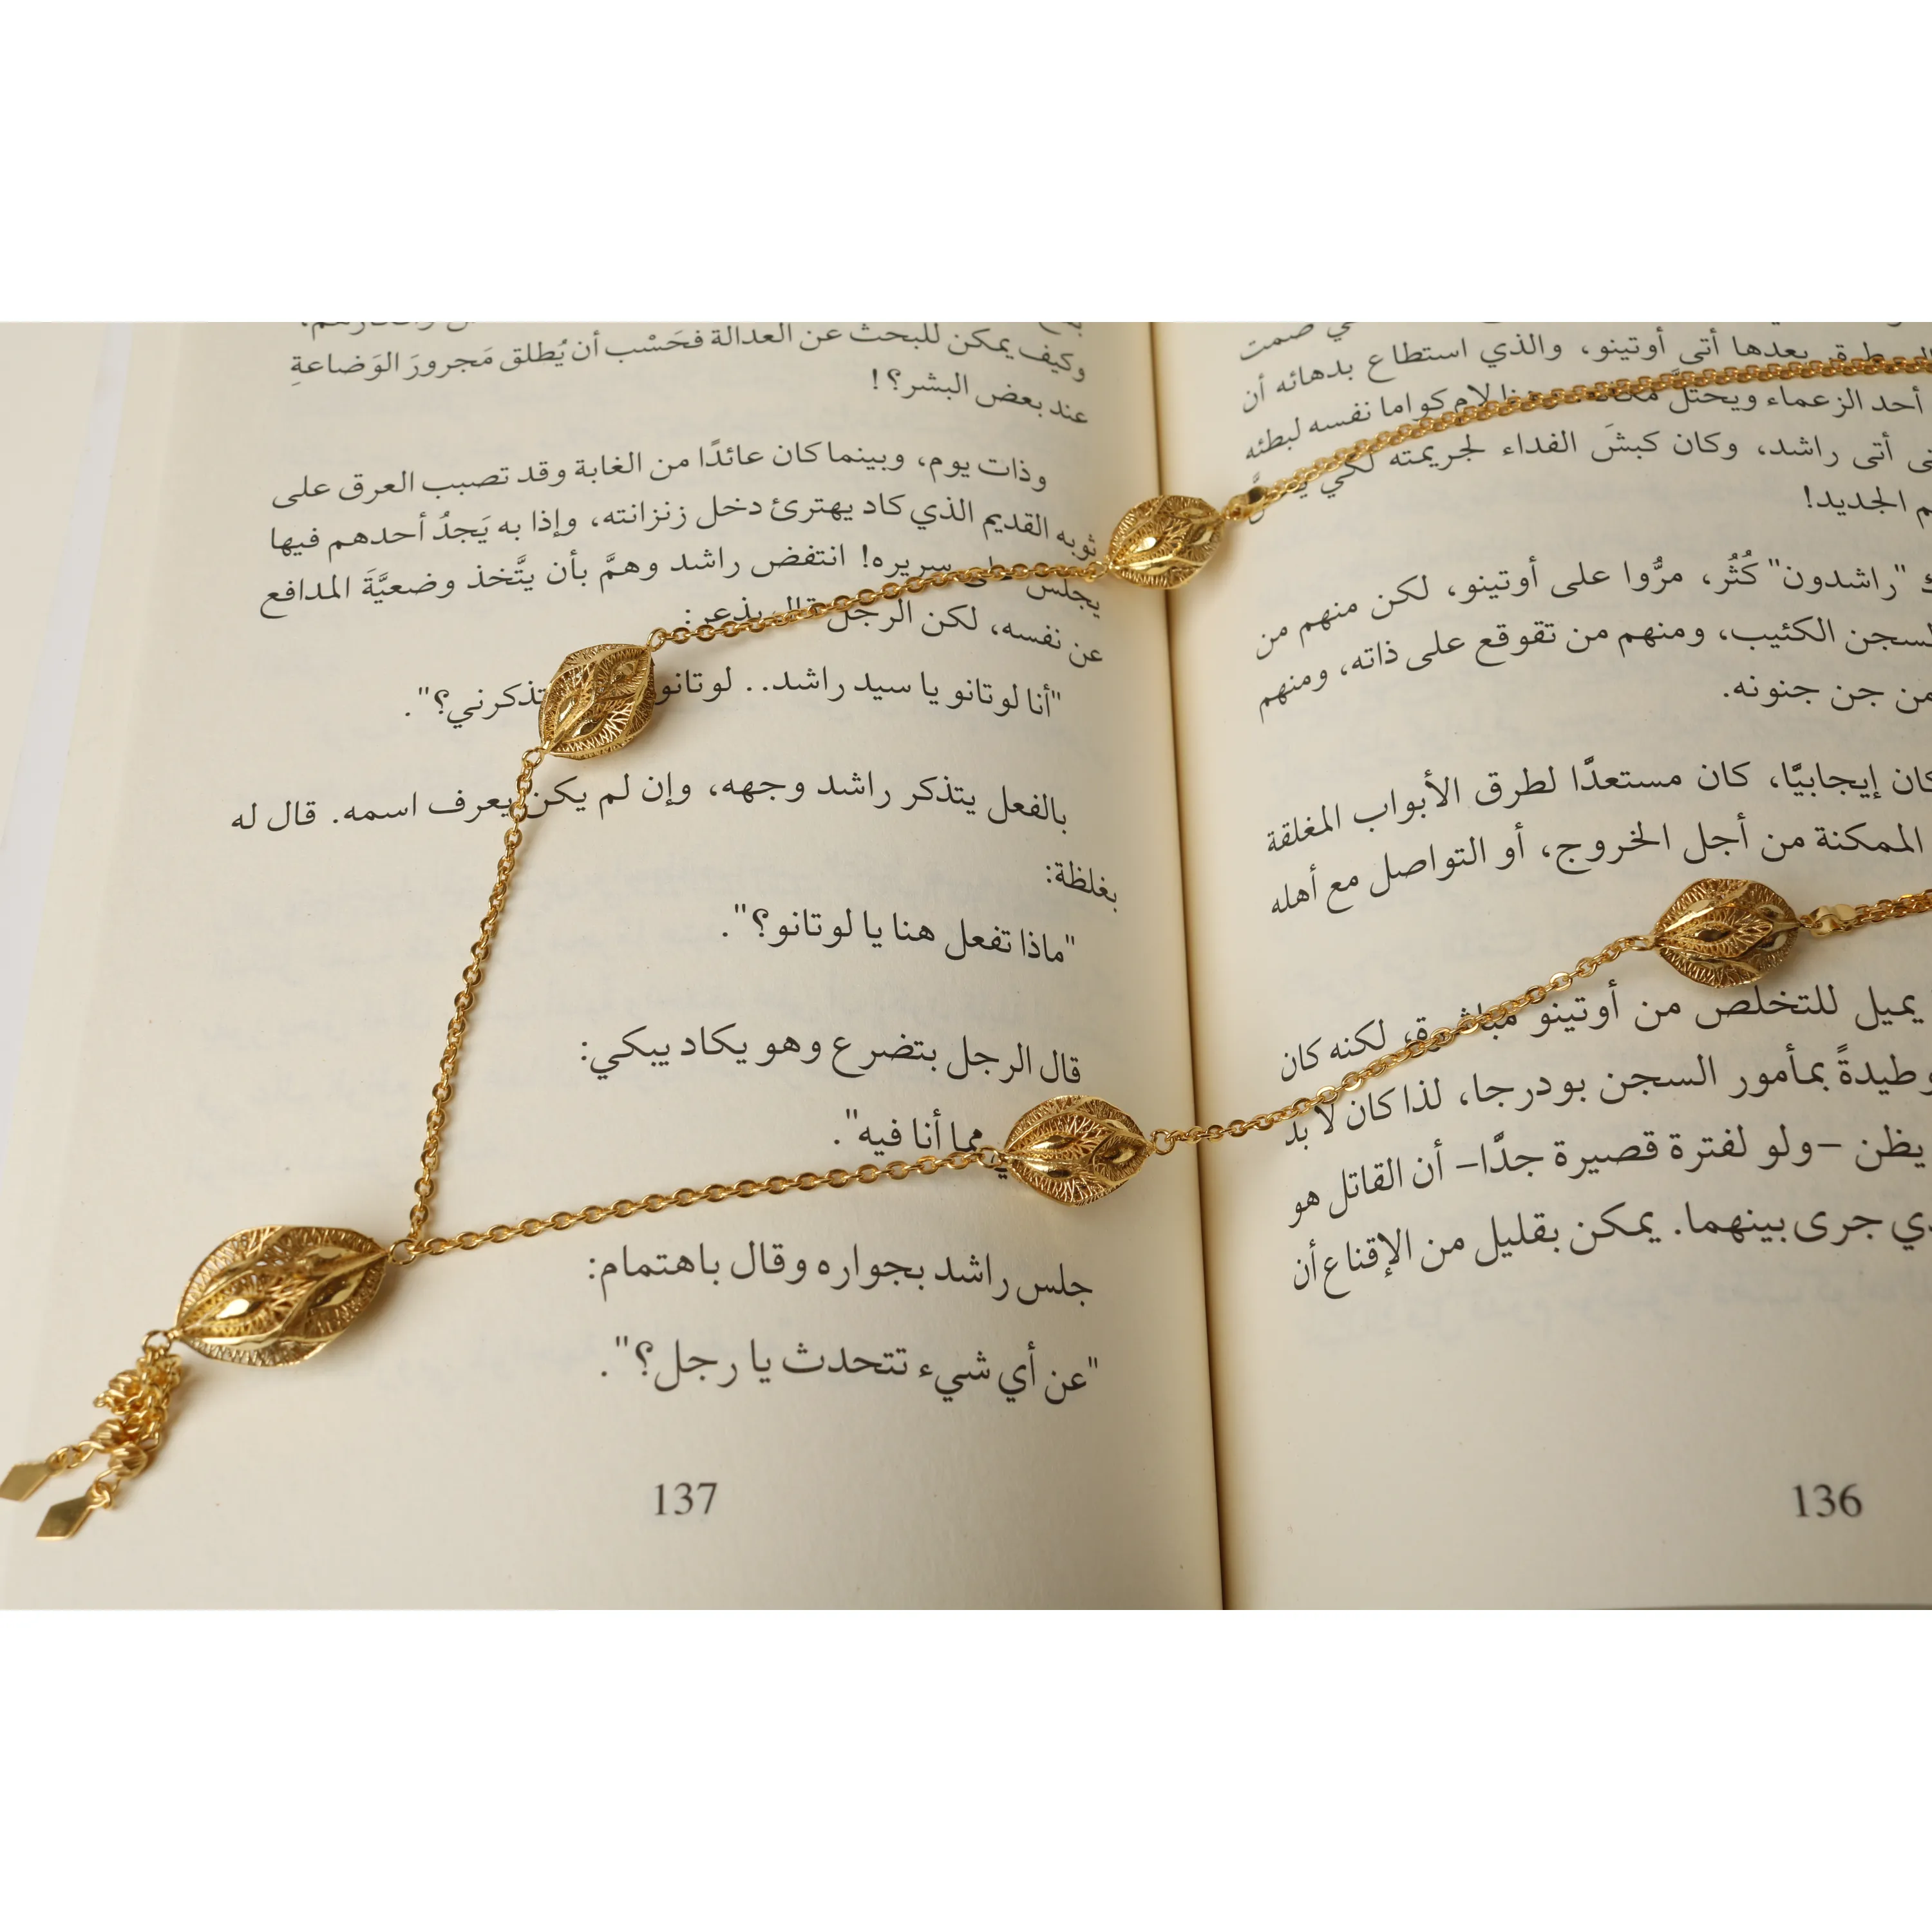 صمت
بعدها أتى أوتينو، والذي استطاع بدهائه أن
أحد الزعماء ويحتلَّ لام كواما نفسه لبطئه
أتى راشد، وكان كبشَ الفداء لجريمته لكي
الجديد!
"راشدون" كُثُر، مرُّوا على أوتينو، لكن منهم من
السجن الكئيب، ومنهم من تقوقع على ذاته، ومنهم
من جن جنونه.
كان إيجابيًّا، كان مستعدًّا لطرق الأبواب المغلقة
الممكنة من أجل الخروج، أو التواصل مع أهله
يميل للتخلص من أوتينو مباشرة، لكنه كان
وطيدةً بمأمور السجن بودرجا، لذا كان لا بد
يظن –ولو لفترة قصيرة جدًّا– أن القاتل هو
جرى بينهما. يمكن بقليل من الإقناع أن
136
وكيف يمكن للبحث عن العدالة فحَسْب أن يُطلق مَجرورَ الوَضاعةِ
عند بعض البشر؟!
وذات يوم، وبينما كان عائدًا من الغابة وقد تصبب العرق على
ثوبه القديم الذي كاد يهترئ دخل زنزانته، وإذا به يَجدُ أحدهم فيها
يجلس على سريره! انتفض راشد وهمَّ بأن يتَّخذ وضعيَّةَ المدافع
عن نفسه، لكن الرجل قال بذعر:
"أنا لوتانو يا سيد راشد.. لوتانو تذكرني؟".
بالفعل يتذكر راشد وجهه، وإن لم يكن يعرف اسمه. قال له
بغلظة:
"ماذا تفعل هنا يا لوتانو؟".
قال الرجل بتضرع وهو يكاد يبكي:
مما أنا فيه".
جلس راشد بجواره وقال باهتمام:
"عن أي شيء تتحدث يا رجل؟".
137